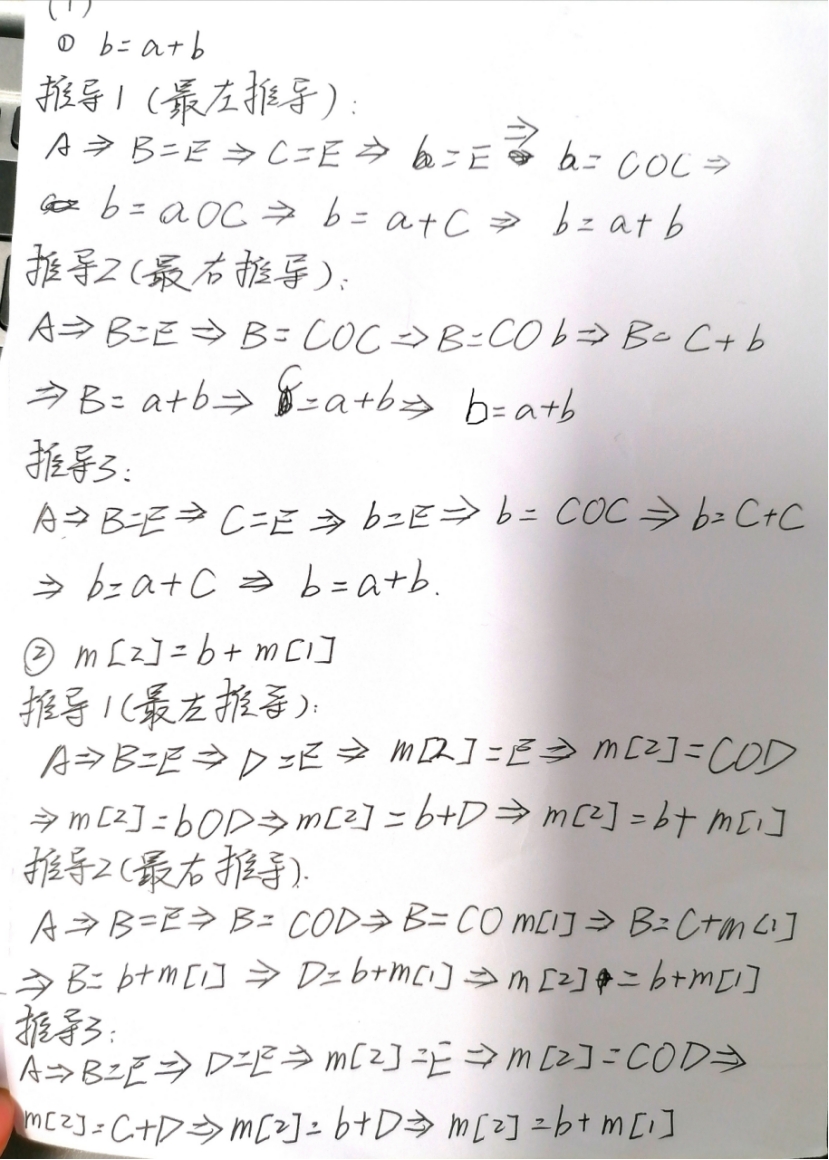 (1)
① b=a+b
推导1(最左推导):
A⇒B=E⇒C=E⇒b=E⇒b=COC⇒
b=aOC⇒b=a+C⇒b=a+b
推导2(最右推导):
A⇒B=E⇒B=COC⇒B=COb⇒B=C+b
⇒B=a+b⇒C=a+b⇒b=a+b
推导3:
A⇒B=E⇒C=E⇒b=E⇒b=COC⇒b=C+C
⇒b=a+C⇒b=a+b.
② m[2]=b+m[1]
推导1(最左推导):
A⇒B=E⇒D=E⇒m[2]=E⇒m[2]=COD
⇒m[2]=bOD⇒m[2]=b+D⇒m[2]=b+m[1]
推导2(最右推导).
A⇒B=E⇒B=COD⇒B=COm[1]⇒B=C+m[1]
⇒B=b+m[1]⇒D=b+m[1]⇒m[2]=b+m[1]
推导3:
A⇒B=E⇒D=E⇒m[2]=E⇒m[2]=COD⇒
m[2]=C+D⇒m[2]=b+D⇒m[2]=b+m[1]